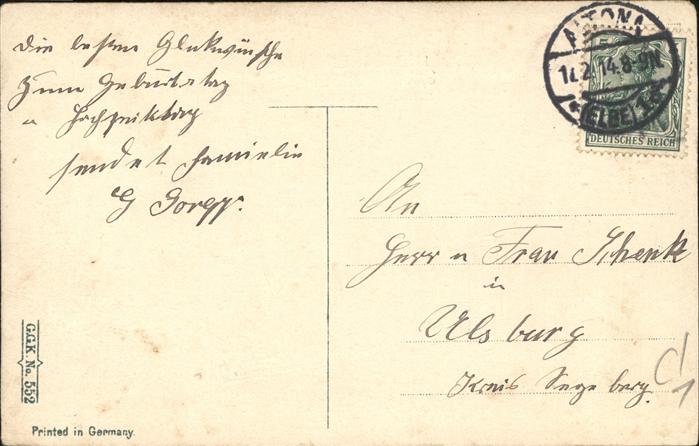 die besten Glukwünsche
zum Geburtstag
u Hochzeiktag
sendet Familie
G
ALTONA
14.8-9N
(ELBE) 1
DEUTSCHES REICH
An
Herr u Frau Schenk
in
Ulsburg
Kreis Segeberg.
G.G.K. No. 552
Printed in Germany.